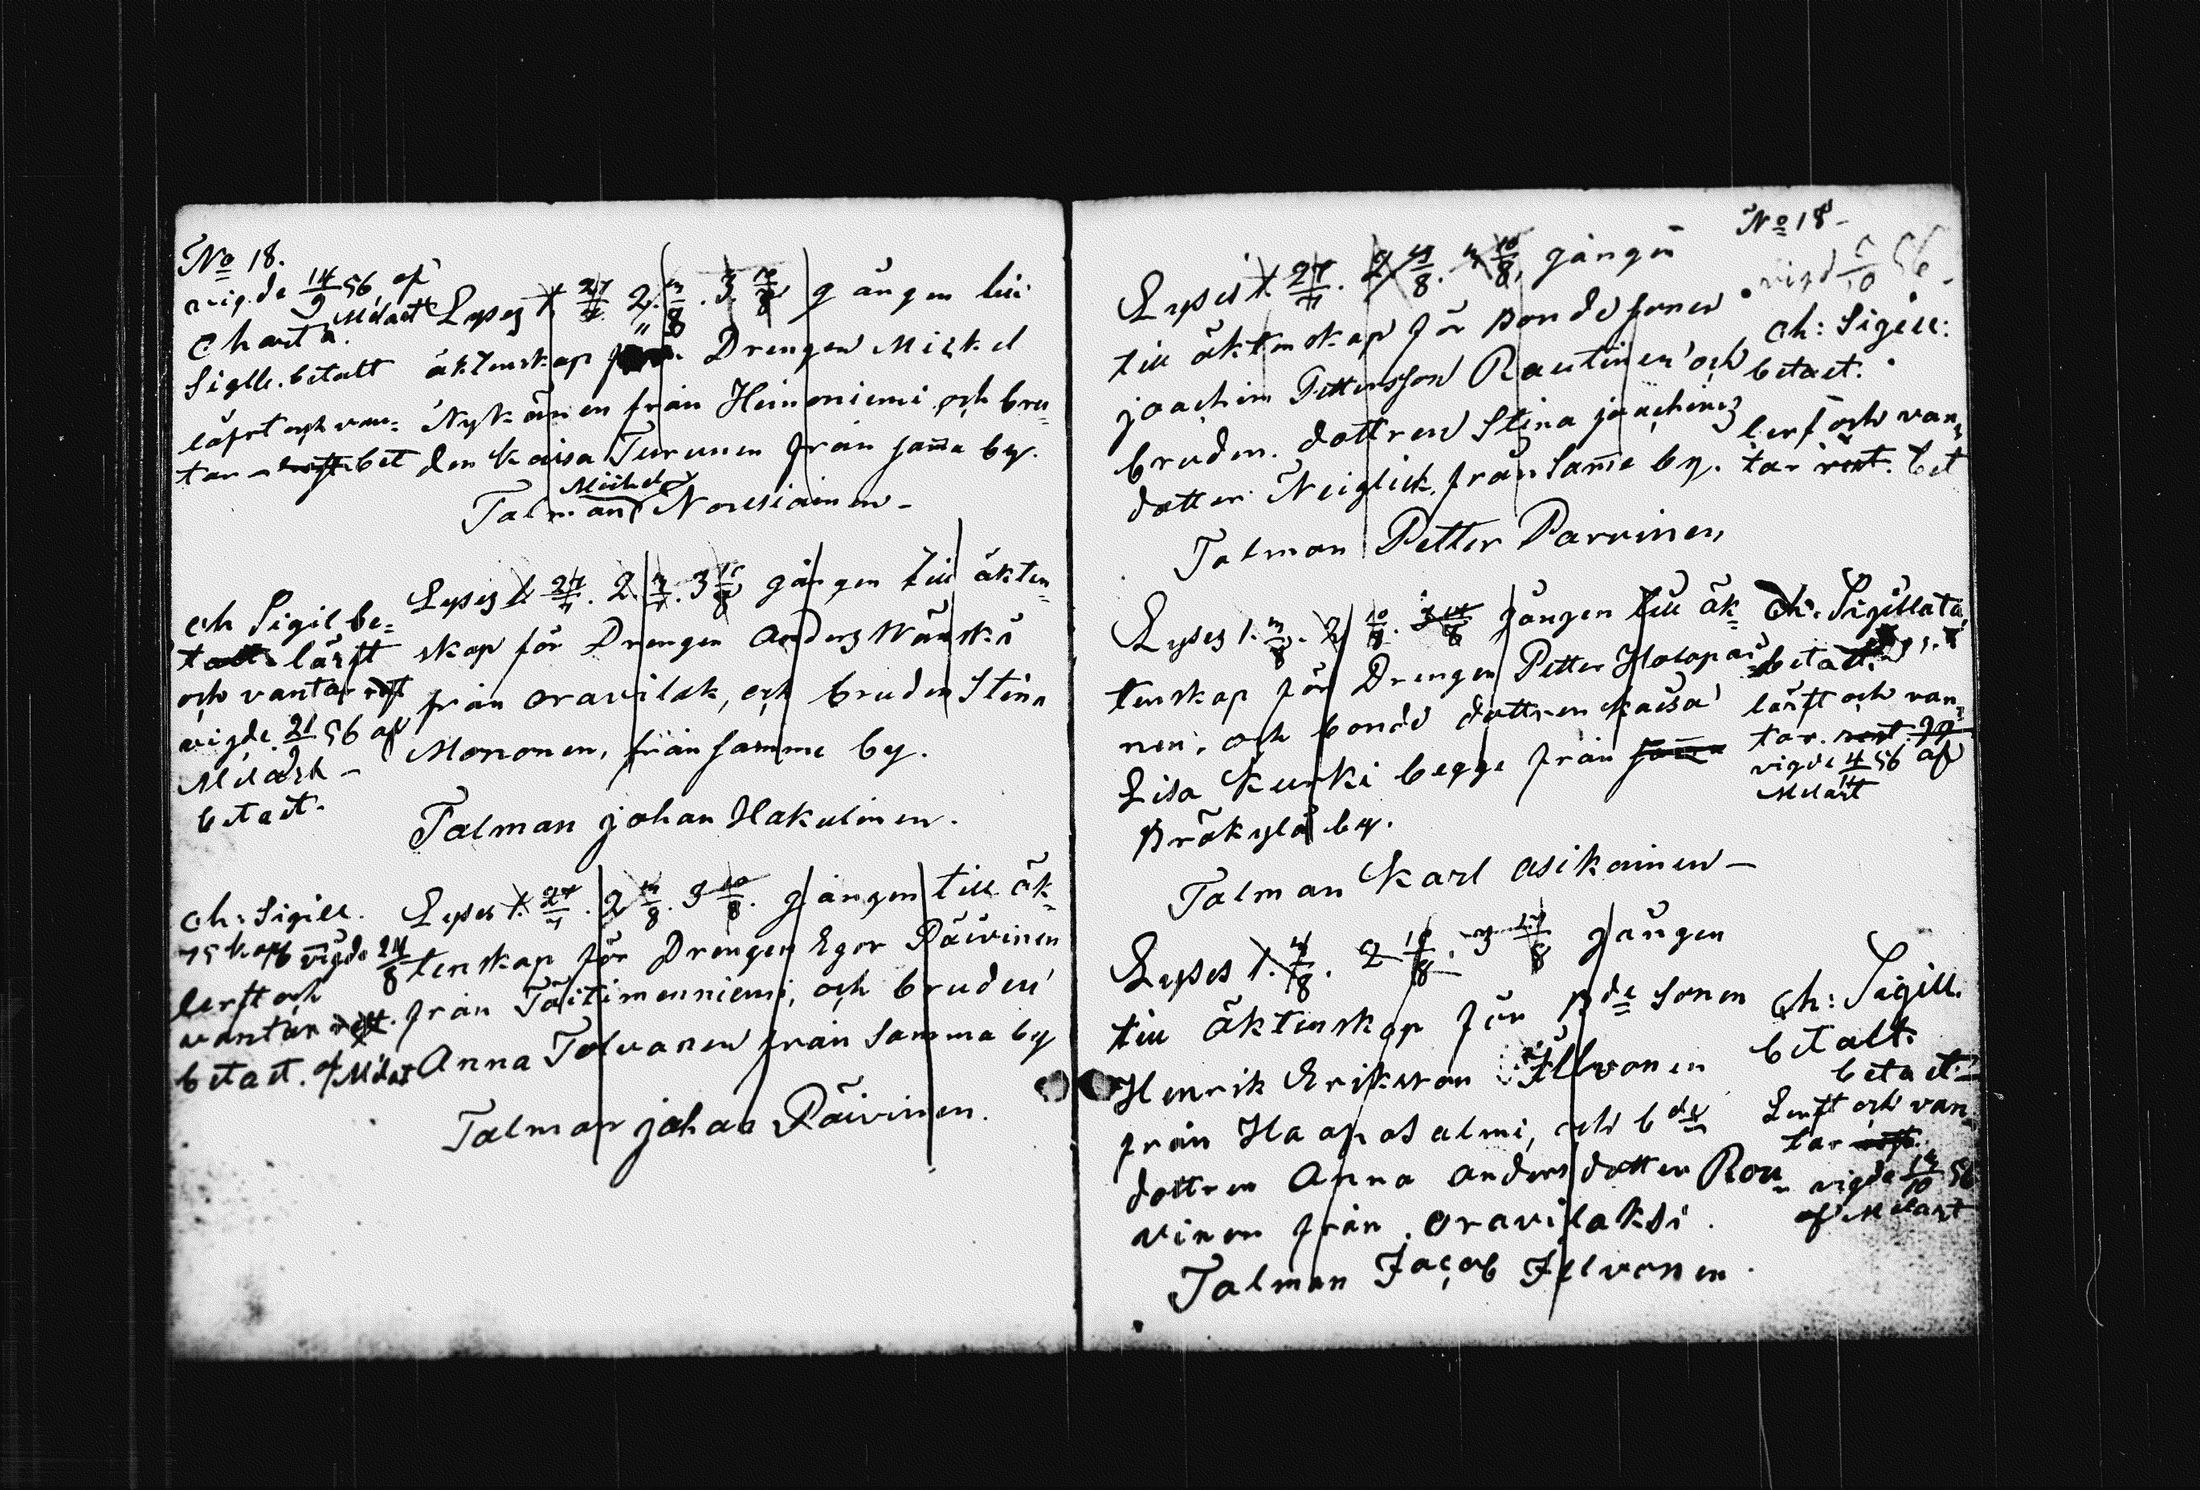 No 18.
vigde 14/9 56 af
Melart
Charta
Sigill. betalt
läsft och van=
tar bet
Lyses 1. 27/7 2. 3/8. 3. 10/8 gången till
äktenskap för Drengen Mickel
Nykänen från Heinoniemi och bru=
den Kaisa Turunen från sam̄a by.
Michel
Talman Nousiainen -
ch Sigil be=
talt. läsft
och vantar rest
vigde 21/9 56 af
Melart -
betalt.
Lyses 1. 27/7. 2. 3/8. 3 10/8 gången till äkten=
skap för Drengen Anders Wänskä
från Oravilak, och bruden Stina
Mononen, från samma by.
Talman Johan Hakulinen.
ch: Sigill.
75 kop vigde 24/8
lerft och
vantar rest.
betalt. af Melart
Lyses 1. 27/7. 2 3/8. 3 10/8. gången till äk=
tenskap för Drengen Egor Päivinen
från Taitimenniemi, och bruden
Anna Tolvanen från Samma by
Talman Johan Päivinen.
No 18 -
vigd 5/10 56 -
ch: Sigill:
betalt.
lerft och van=
tar rest. bet
Lyses 1. 27/7. 2 3/8. 3 10/8. gången
till äktenskap för Bonde sonen
Joachim Pettersson Rautinen och
bruden. dottren Stina Joachims
dotter Neiglick, från Sam̄e by.
Talman Petter Parvinen,
ch: Sigillata
betalt.
läsft och van=
tar. rest
vigde 4/11 56 af
Melart
Lyses 1. 3/8. 2 10/8. 3 17/8 gången till äk=
tenskap för Drengen Petter Holopai=
nen, och bonde dottren Kaisa
Lisa Kurki begge från sam̄a
Bräkylä by.
Talman Karl Asikainen -
Lyses 1. 3/8. 2 10/8. 3 17/8 gången
till äktenskap för Bde Sonen
Henrik Eriksson Illvonen
från Haapasalmi, och bde
dottren Anna Andersdotter Rou=
vinen från Oravilaksi.
Talman Jacob Illvonen.
ch: Sigill.
betalt.
betalt.
Lerft och van=
tar rest.
vigde 14/10 56
af Melart